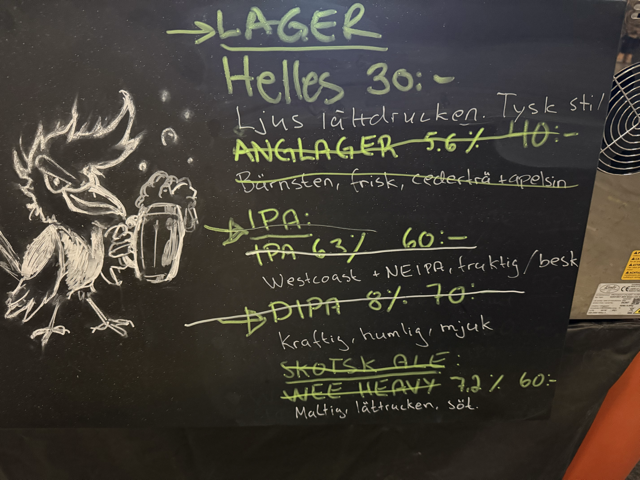 LAGER
Helles 30:-
Ljus lättdrucken. Tysk stil
ANGLAGER 5.6% 40:-
Bärnsten, frisk, cederträ + apelsin
IPA:
IPA 6.3% 60:-
Westcoast + NEIPA, fruktig/besk
DIPA 8% 70:-
Kraftig, humlig, mjuk
SKOTSK ALE:
WEE HEAVY 7,2% 60:-
Maltig, lättrucken, söt.